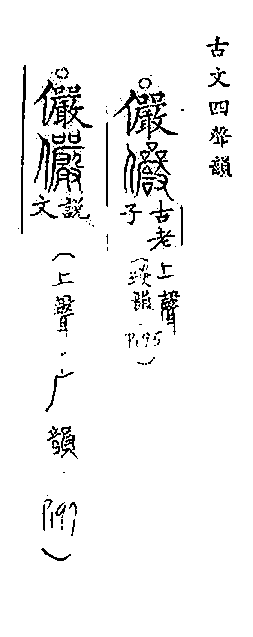 古文四聲韻
儼 古老子（上聲．琰韻．P195）
儼儼 說文（上聲．广韻．P197）